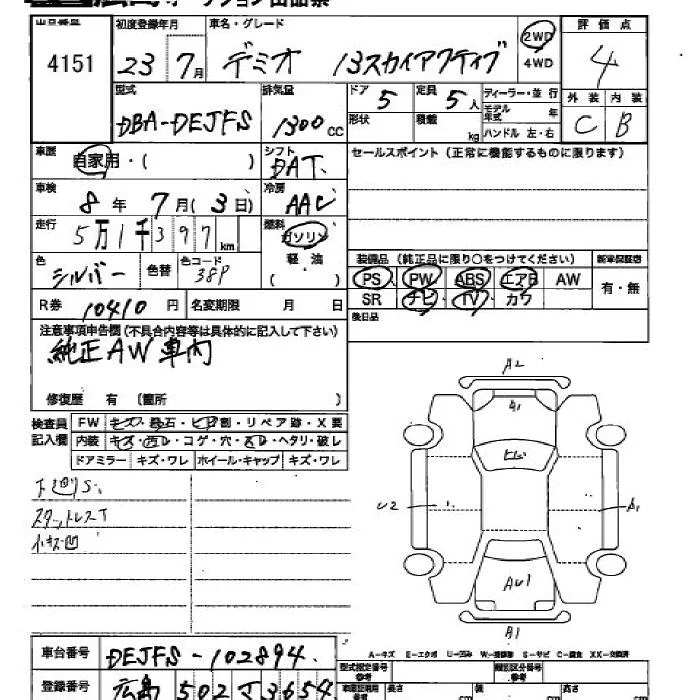 4151
初度登録年月 車名・グレード 評価点
23 7月 デミオ 13スカイアクティブ 2WD 4WD 4
型式 排気量 ドア 5 定員 5人 ディーラー・並行 外装 内装
DBA-DEJFS 1300cc 形状 積載 kg モデル年式 年 ハンドル 左・右 C B
車歴 自家用・( ) シフト DAT セールスポイント(正常に機能するものに限ります)
車検 8年 7月(3日) 冷房 AAC
走行 5万1千397km 燃料 ガソリン
色 シルバー 色替 色コード 38P 軽油 ( )
装備品(純正品に限り○をつけてください) 新車保証書
PS PW ABS エアB AW 有・無
SR ナビ・TV・カワ
R券 10410円 名変期限 月 日 後日品
注意事項申告欄(不具合内容等は具体的に記入して下さい)
純正AW車内
修復歴 有 〔箇所 〕
検査員記入欄 FW キズ・飛石・ヒビ割・リペア跡・X要
内装 キズ・汚レ・コゲ・穴・スレ・ヘタリ・破レ
ドアミラー キズ・ワレ ホイール・キャップ キズ・ワレ
下回りS.
スタットレスT
小キズ凹
A2
A1
ヒレ
U2
A1
AU1
A1
A-キズ E-エクボ U-凹み W-補修跡 S-サビ C-腐食 XX-交換済
車台番号 DEJFS-102894
型式指定番号 参考 類別区分番号 参考
登録番号 広島 502 さ 3654
長さ cm 幅 cm 高さ cm